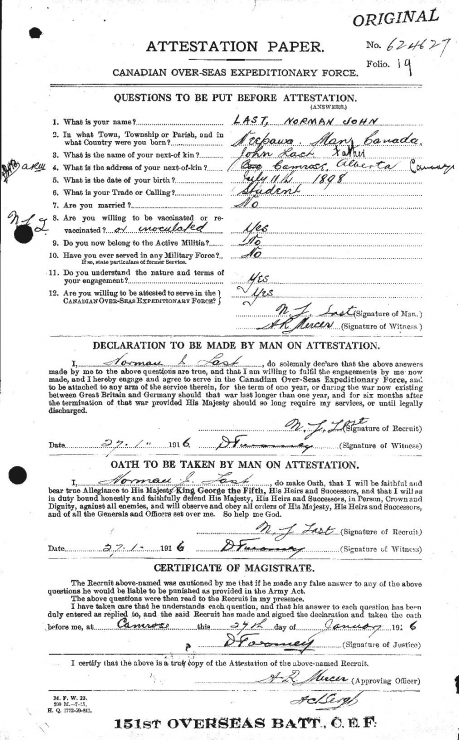 ORIGINAL
ATTESTATION PAPER.
No. 624627
Folio. 19
CANADIAN OVER-SEAS EXPEDITIONARY FORCE.
QUESTIONS TO BE PUT BEFORE ATTESTATION.
(ANSWERS.)
1. What is your name? LAST, NORMAN JOHN
2. In what Town, Township or Parish, and in
what Country were you born? Neepawa, Man, Canada.
3. What is the name of your next-of-kin? John Last Father
4. What is the address of your next-of-kin? Camrose, Alberta
5. What is the date of your birth? July 11th 1898
6. What is your Trade or Calling? Student
7. Are you married? No
8. Are you willing to be vaccinated or re-
vaccinated? or inoculated Yes
9. Do you now belong to the Active Militia? No
10. Have you ever served in any Military Force? No
If so, state particulars of former Service.
11. Do you understand the nature and terms of
your engagement? Yes
12. Are you willing to be attested to serve in the
CANADIAN OVER-SEAS EXPEDITIONARY FORCE? Yes
N. J. Last (Signature of Man.)
A R Mercer (Signature of Witness)
DECLARATION TO BE MADE BY MAN ON ATTESTATION.
I, Norman J. Last, do solemnly declare that the above answers
made by me to the above questions are true, and that I am willing to fulfil the engagements by me now
made, and I hereby engage and agree to serve in the Canadian Over-Seas Expeditionary Force, and
to be attached to any arm of the service therein, for the term of one year, or during the war now existing
between Great Britain and Germany should that war last longer than one year, and for six months after
the termination of that war provided His Majesty should so long require my services, or until legally
discharged.
N. J. Last (Signature of Recruit)
Date 27. 1. 1916 (Signature of Witness)
OATH TO BE TAKEN BY MAN ON ATTESTATION.
I, Norman J. Last, do make Oath, that I will be faithful and
bear true Allegiance to His Majesty King George the Fifth, His Heirs and Successors, and that I will as
in duty bound honestly and faithfully defend His Majesty, His Heirs and Successors, in Person, Crown and
Dignity, against all enemies, and will observe and obey all orders of His Majesty, His Heirs and Successors,
and of all the Generals and Officers set over me. So help me God.
N. J. Last (Signature of Recruit)
Date 27. 1. 1916 (Signature of Witness)
CERTIFICATE OF MAGISTRATE.
The Recruit above-named was cautioned by me that if he made any false answer to any of the above
questions he would be liable to be punished as provided in the Army Act.
The above questions were then read to the Recruit in my presence.
I have taken care that he understands each question, and that his answer to each question has been
duly entered as replied to, and the said Recruit has made and signed the declaration and taken the oath
before me, at Camrose this 27th day of January 1916
(Signature of Justice)
I certify that the above is a true copy of the Attestation of the above-named Recruit.
A. R. Mercer (Approving Officer)
M. F. W. 23.
H. Q. 1772-39-841.
151ST OVERSEAS BATT. C.E.F.